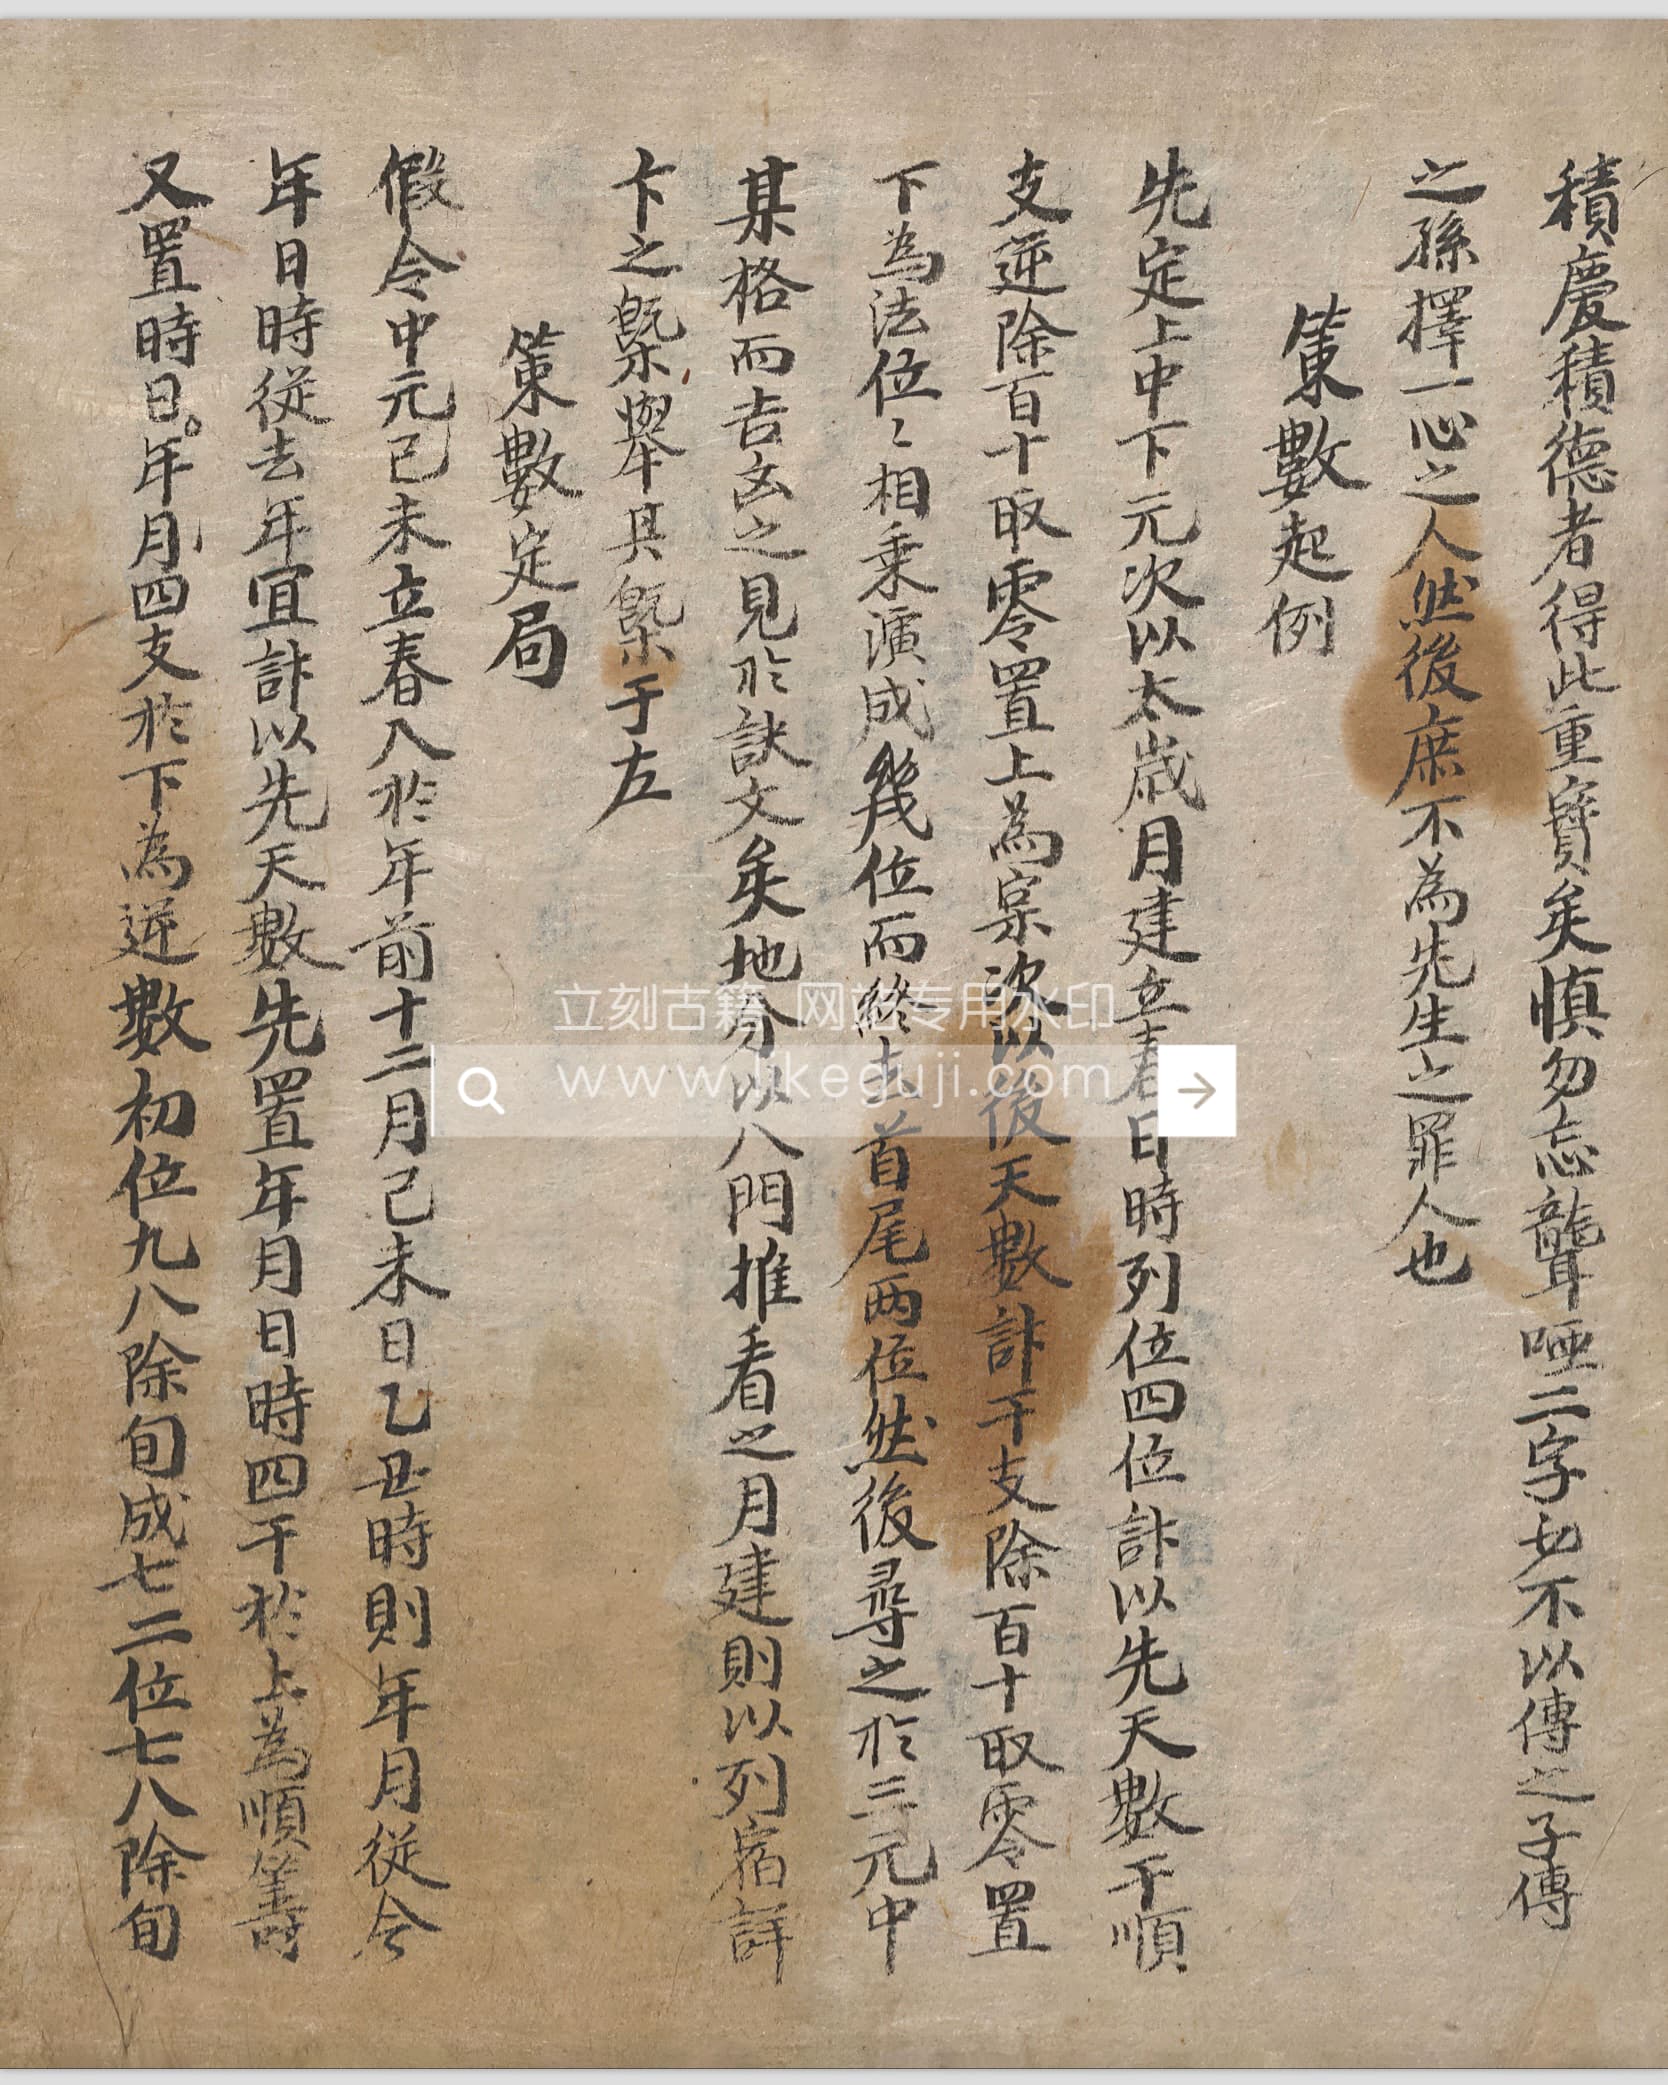 積慶積德者得此重寶矣慎勿忘聾啞二字切不以傳之子傳
之孫擇一心之人然後庶不為先生之罪人也
策數起例
先定上中下元次以太歲月建立春日時列位四位計以先天數干順
支逆除百十取零置上為宲次以後天數計干支除百十取零置
下為法位〻相乗演成幾位而終去首尾两位然後尋之扵三元中
某格而吉㐫之見扵訣文矣地分以八門推看之月建則以列宿詳
卞之槩擧其槩于左
策數定局
假令中元己未立春入扵年前十二月己未日乙丑時則年月従今
年日時従去年宜計以先天數先置年月日時四干扵上為順筭
又置時日。年月四支扵下為逆數初位九八除旬成七二位七八除旬
立刻古籍 网站专用水印
www.likeguji.com